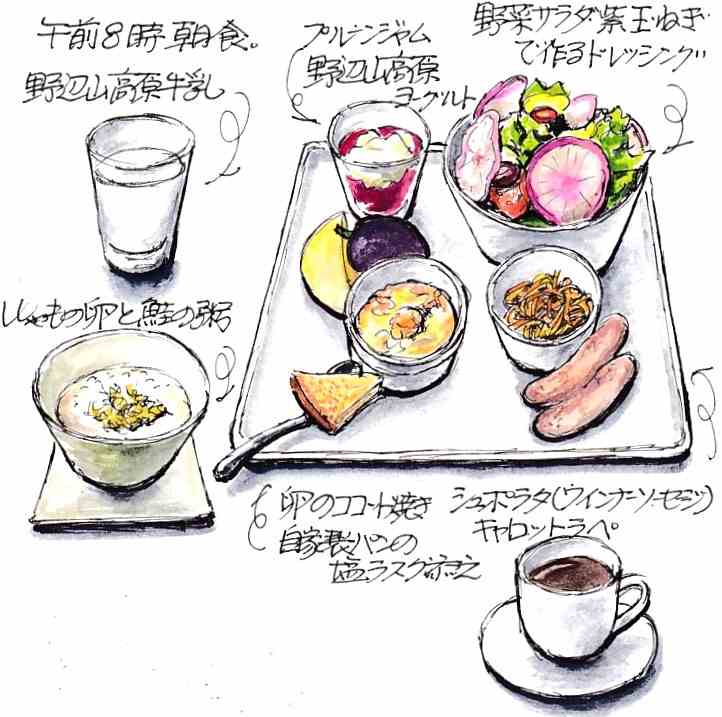 午前8時 朝食。
野辺山高原牛乳
プルーンジャム
野辺山高原
ヨーグルト
野菜サラダ 紫玉ねぎ
で作るドレッシング
ししゃもの卵と鮭の粥
卵のココット焼き
自家製パンの
塩ラスク添え
シュポラタ(ウインナーソーセージ)
キャロットラペ